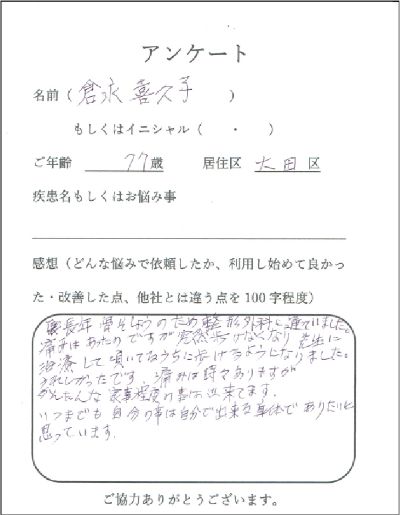 アンケート
名前(倉永 喜久子)
もしくはイニシャル( ・ )
ご年齢 77歳 居住区 大田区
疾患名もしくはお悩み事
感想(どんな悩みで依頼したか、利用し始めて良かっ
た・改善した点、他社とは違う点を100字程度)
長年 骨そしょうのため 整形外科に通っていました。
痛みはあったのですが 突然歩けなくなり 先生に
治療して頂いてるうちに歩けるようになりました。
うれしかったです。 痛みは時々ありますが
かんたんな 家事程度の事は出来てます。
いつまでも 自分の事は自分で出来る身体で ありたいと
思っています。
ご協力ありがとうございます。